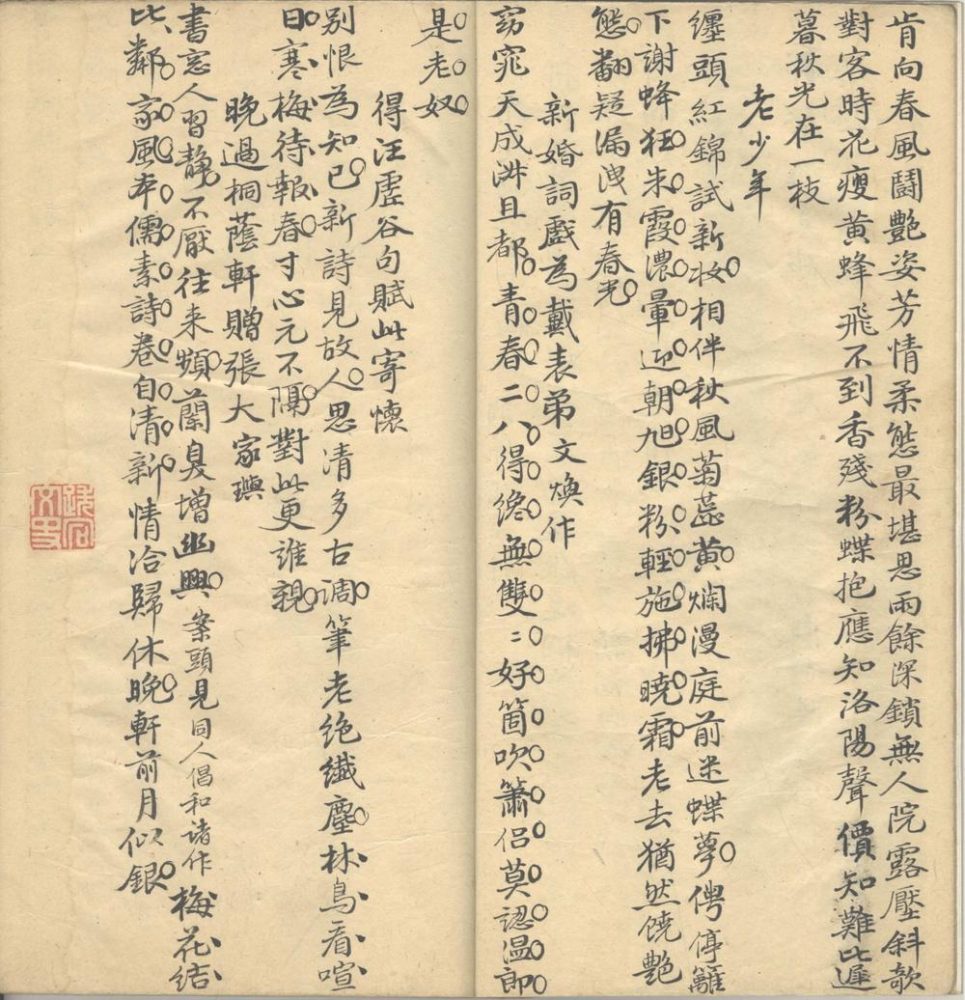 肯向春風鬪艷姿芳情柔態最堪思雨餘深鎖無人院露壓斜欹
對客時花瘦黃蜂飛不到香殘粉蝶抱應知洛陽聲價知難比遲
暮秋光在一枝
老少年
纏頭紅錦試新妝相伴秋風菊蕊黃爛漫庭前迷蝶夢傳停籬
下謝蜂狂朱霞濃暈迎朝旭銀粉輕施拂曉霜老去猶然饒艷
態翻疑漏洩有春光
新婚詞戲為戴表弟文煥作
窈窕天成洵且都青春二八得纔無雙〻好箇吹簫侶莫認温郎
是老奴
得汪虛谷句賦此寄懷
別恨為知已新詩見故人思清多古調筆老絶纖塵林鳥看喧
日寒梅待報春寸心元不隔對此更誰親
晚過桐蔭軒贈張大家璵
書窓人習靜不厭往来頻蘭臭增幽興案頭見同人倡和諸作梅花結
比鄰家風本儒素詩卷自清新情洽歸休晚軒前月似銀